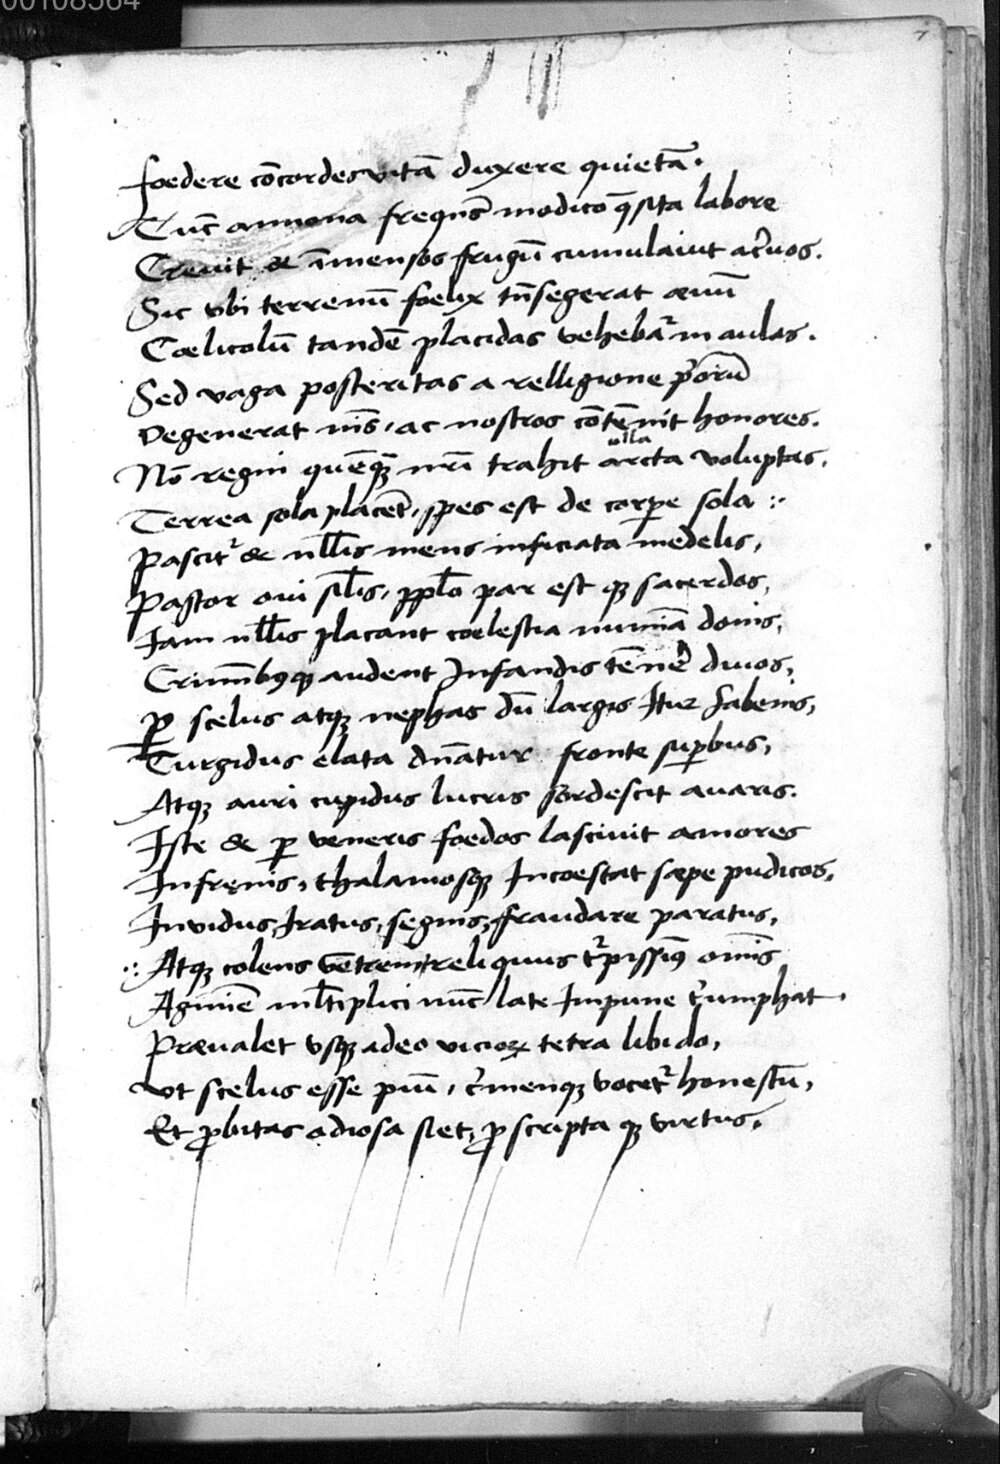 00108564
7
foedere cõcordes vitã duxere quietã.
Tũc annona freqñs modico q̃sita labore
Crevit & ĩmensos frugũ cumulavit acervos.
Sic vbi terrenũ foelix tñsegerat aeuũ
Coelicolũ tandẽ placidas vehebat᷑ in aulas.
Sed vaga posteritas a relligione p̃orũ
Degenerat nr̃is, ac nostros cõtẽnit honores.
ulla
Nõ regni quẽq̃ȝ nr̃i trahit arcta voluptas,
Terrea sola placẽt, spes est de corꝑe sola :·
Pascit᷑ & nll̃is mens inficiata medelis,
Pastor oui sil̃is, ppl̃o par est qȝ sacerdos,
Iam nll̃is placant coelestia numinã donis,
Criminĩbꝯqȝ audent Infandis tẽnere diuos,
ꝑ scelus atqȝ nephas dũ largis Itur habenis,
Turgidus elata dñatur fronte suꝑbus,
Atqȝ auri cupidus lucris sordescit avaris.
Iste & ꝑ veneris foedos lascivit amores
Infrenis, thalamosqȝ Incoestat saepe pudicos,
Invidus, Iratus, segnis, fraudare paratus,
·: Atqȝ colens vẽtrem, reliquus t᷑pissimꝯ om̃is
Agminẽ ml̃tiplici nũc late Impune t᷑umphat.
Praeualet vsqȝ adeo vicioꝝ tetra libido,
vt scelus esse piũ, c᷑menqȝ vocet᷑ honestũ,
Et ꝓbitas odiosa siet, ꝓscripta qȝ virtus.